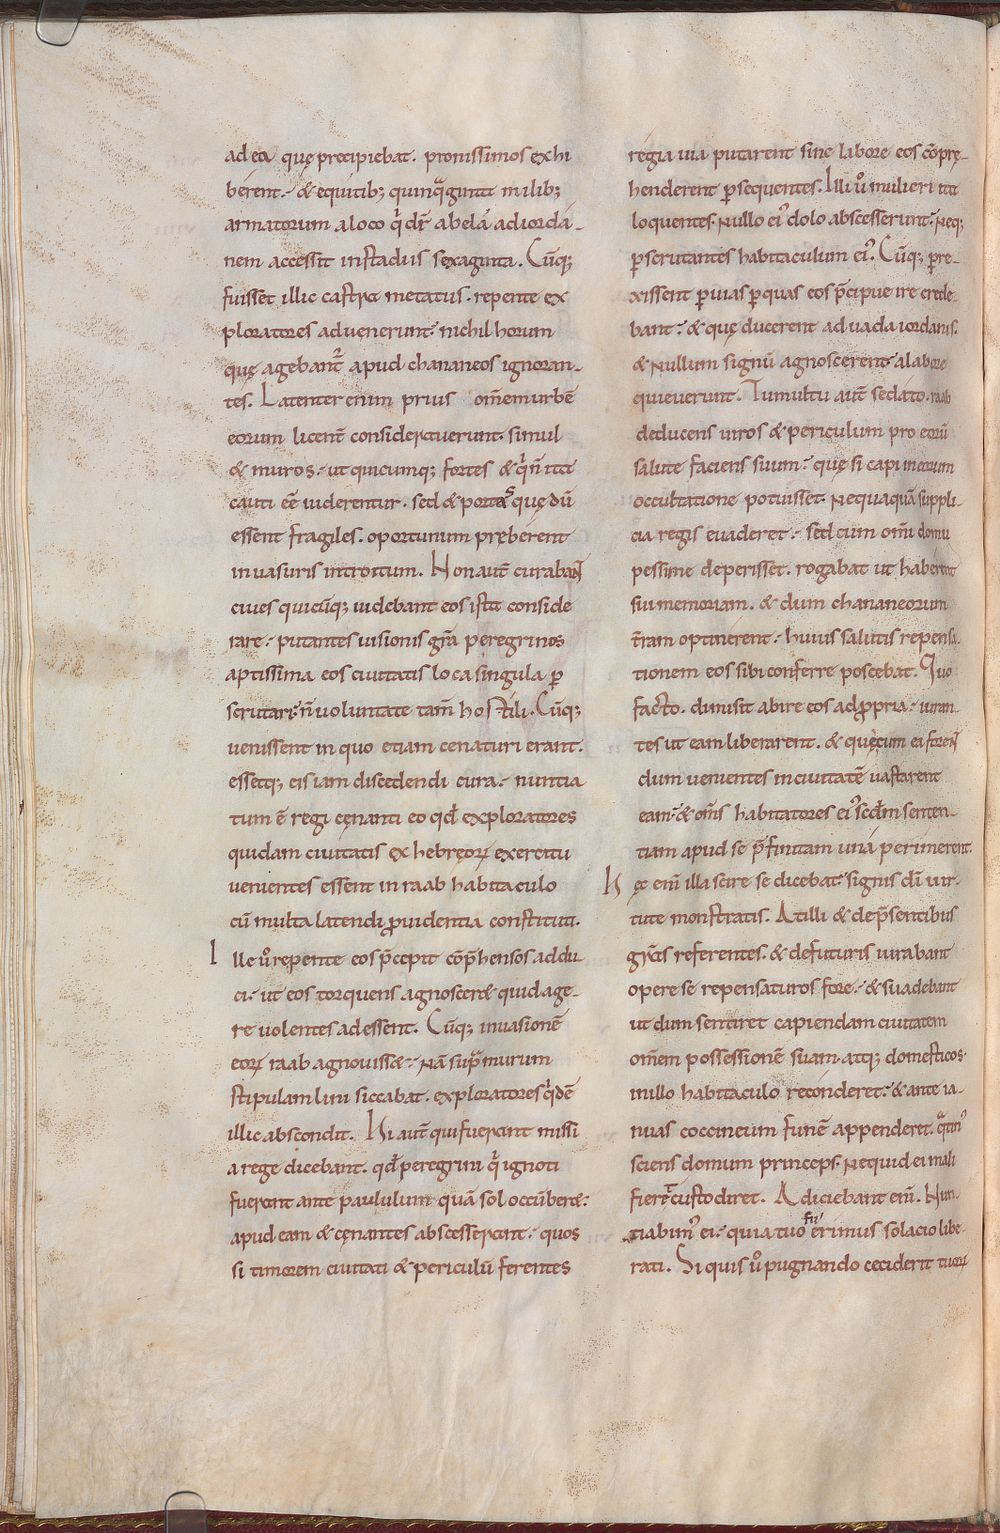 ad ea quę precipiebat. promissimos exhi
berent·⁊ & equitib; quinq̃ginta milib;
armatorum a loco q̃ dr̃ abelã ad iordã-
nem accessit in stadiis sexaginta. Cũq;
fuisset illic castra metatus. repente ex
ploratores advenerunt nichil horum
quę agebant̃ apud chananeos ignoran-
tes. Latenter enim prius om̃em urbẽ
eorum licent̃ consideraverunt. simul
& muros·⁊ ut quicumq; fortes & q̃ ñ ita
cauti eẽ viderentur. sed & portas quę dũ
essent fragiles. oportunum pręberent
invasuris introitum. Non aut̃ curabant
cives quicũq; videbant eos ista conside
rare·⁊ putantes visionis gr̃a peregrinos
aptissima eos civitatis loca singula ꝑ
scrutari·⁊ ñ voluntate tam̃ hostili. Cũq;
venissent in quo etiam cenaturi erant.
essetq; eis iam discedendi cura·⁊ nuntia
tum ẽ regi cęnanti eo qđ exploratores
quidam civitatis ex hebręoꝝ exercitu
venientes essent in raab habitaculo
cũ multa latendi ꝓvidentia constituti.
Ille ũ repente eos p̃cepit cõp̃hensos addu
ci·⁊ ut eos torquens agnosceret quid age-
re volentes adessent. Cũq; invasionẽ
eoꝝ raab agnovisset·⁊ Nã sup̃ murum
stipulam lini siccabat. exploratores q̃dẽ
illic abscondit. Hi aut̃ qui fuerant missi
a rege dicebant. qđ peregrini q̃ ignoti
fuerant ante paululum quã sol occũberet·⁊
apud eam & cęnantes abscesserant·⁊ quos
si timorem civitati & periculũ ferentes
regia via putarent sine labore eos cõprę-
henderent ꝑsequentes. Illi ũ mulieri ita
loquentes. Nullo ei᾽ dolo abscesserunt·⁊ Neq;
ꝑscrutantes habitaculum ei᾽. Cũq; ꝑre-
xissent ꝑ vias ꝑ quas eos p̃cipue ire crede-
bant·⁊ & quę ducerent ad vada iordanis.
& Nullum signũ agnoscerent·⁊ a labore
quieverunt. Tumultu aut̃ sedato. raab
deducens viros & periculum pro eorũ
salute faciens suum·⁊ quę si capi in eorum
occultatione potuisset. Nequaquã suppli-
cia regis evaderet·⁊ sed cum om̃i domu
pessime deperisset. rogabat ut haberent
sui memoriam. & dum chananeorum
t̃ram optinerent·⁊ huius salutis repensa
tionem eos sibi conferre poscebat. Quo
facto. dimisit abire eos ad ꝓpria·⁊ iuran-
tes ut eam liberarent. & quęcum ea forent
dum venientes in civitatẽ vastarent
eam·⁊ & om̃s habitatores ei᾽ scđm senten-
tiam apud se p̃finitam unã perimerent.
Hęc eñi illa scire se dicebat·⁊ signis dĩ vir-
tute monstratis. At illi & de p̃sentibus
gr̃as referentes. & de futuris iurabant
opere se repensaturos fore·⁊ & suadebant
ut dum sentiret capiendam civitatem
om̃em possessionẽ suam. atq; domesticos.
in illo habitaculo reconderet·⁊ & ante ia-
nuas coccineum funẽ appenderet. q̃tin᾽
sciens domum princeps. Ne quid ei mali
fieret custodiret. Adiciebant eñi. Nun
tiabim᾽ ei·⁊ quia tuo erimus solacio libe-
rati. Si quis ũ pugnando ceciderit tuoꝝ